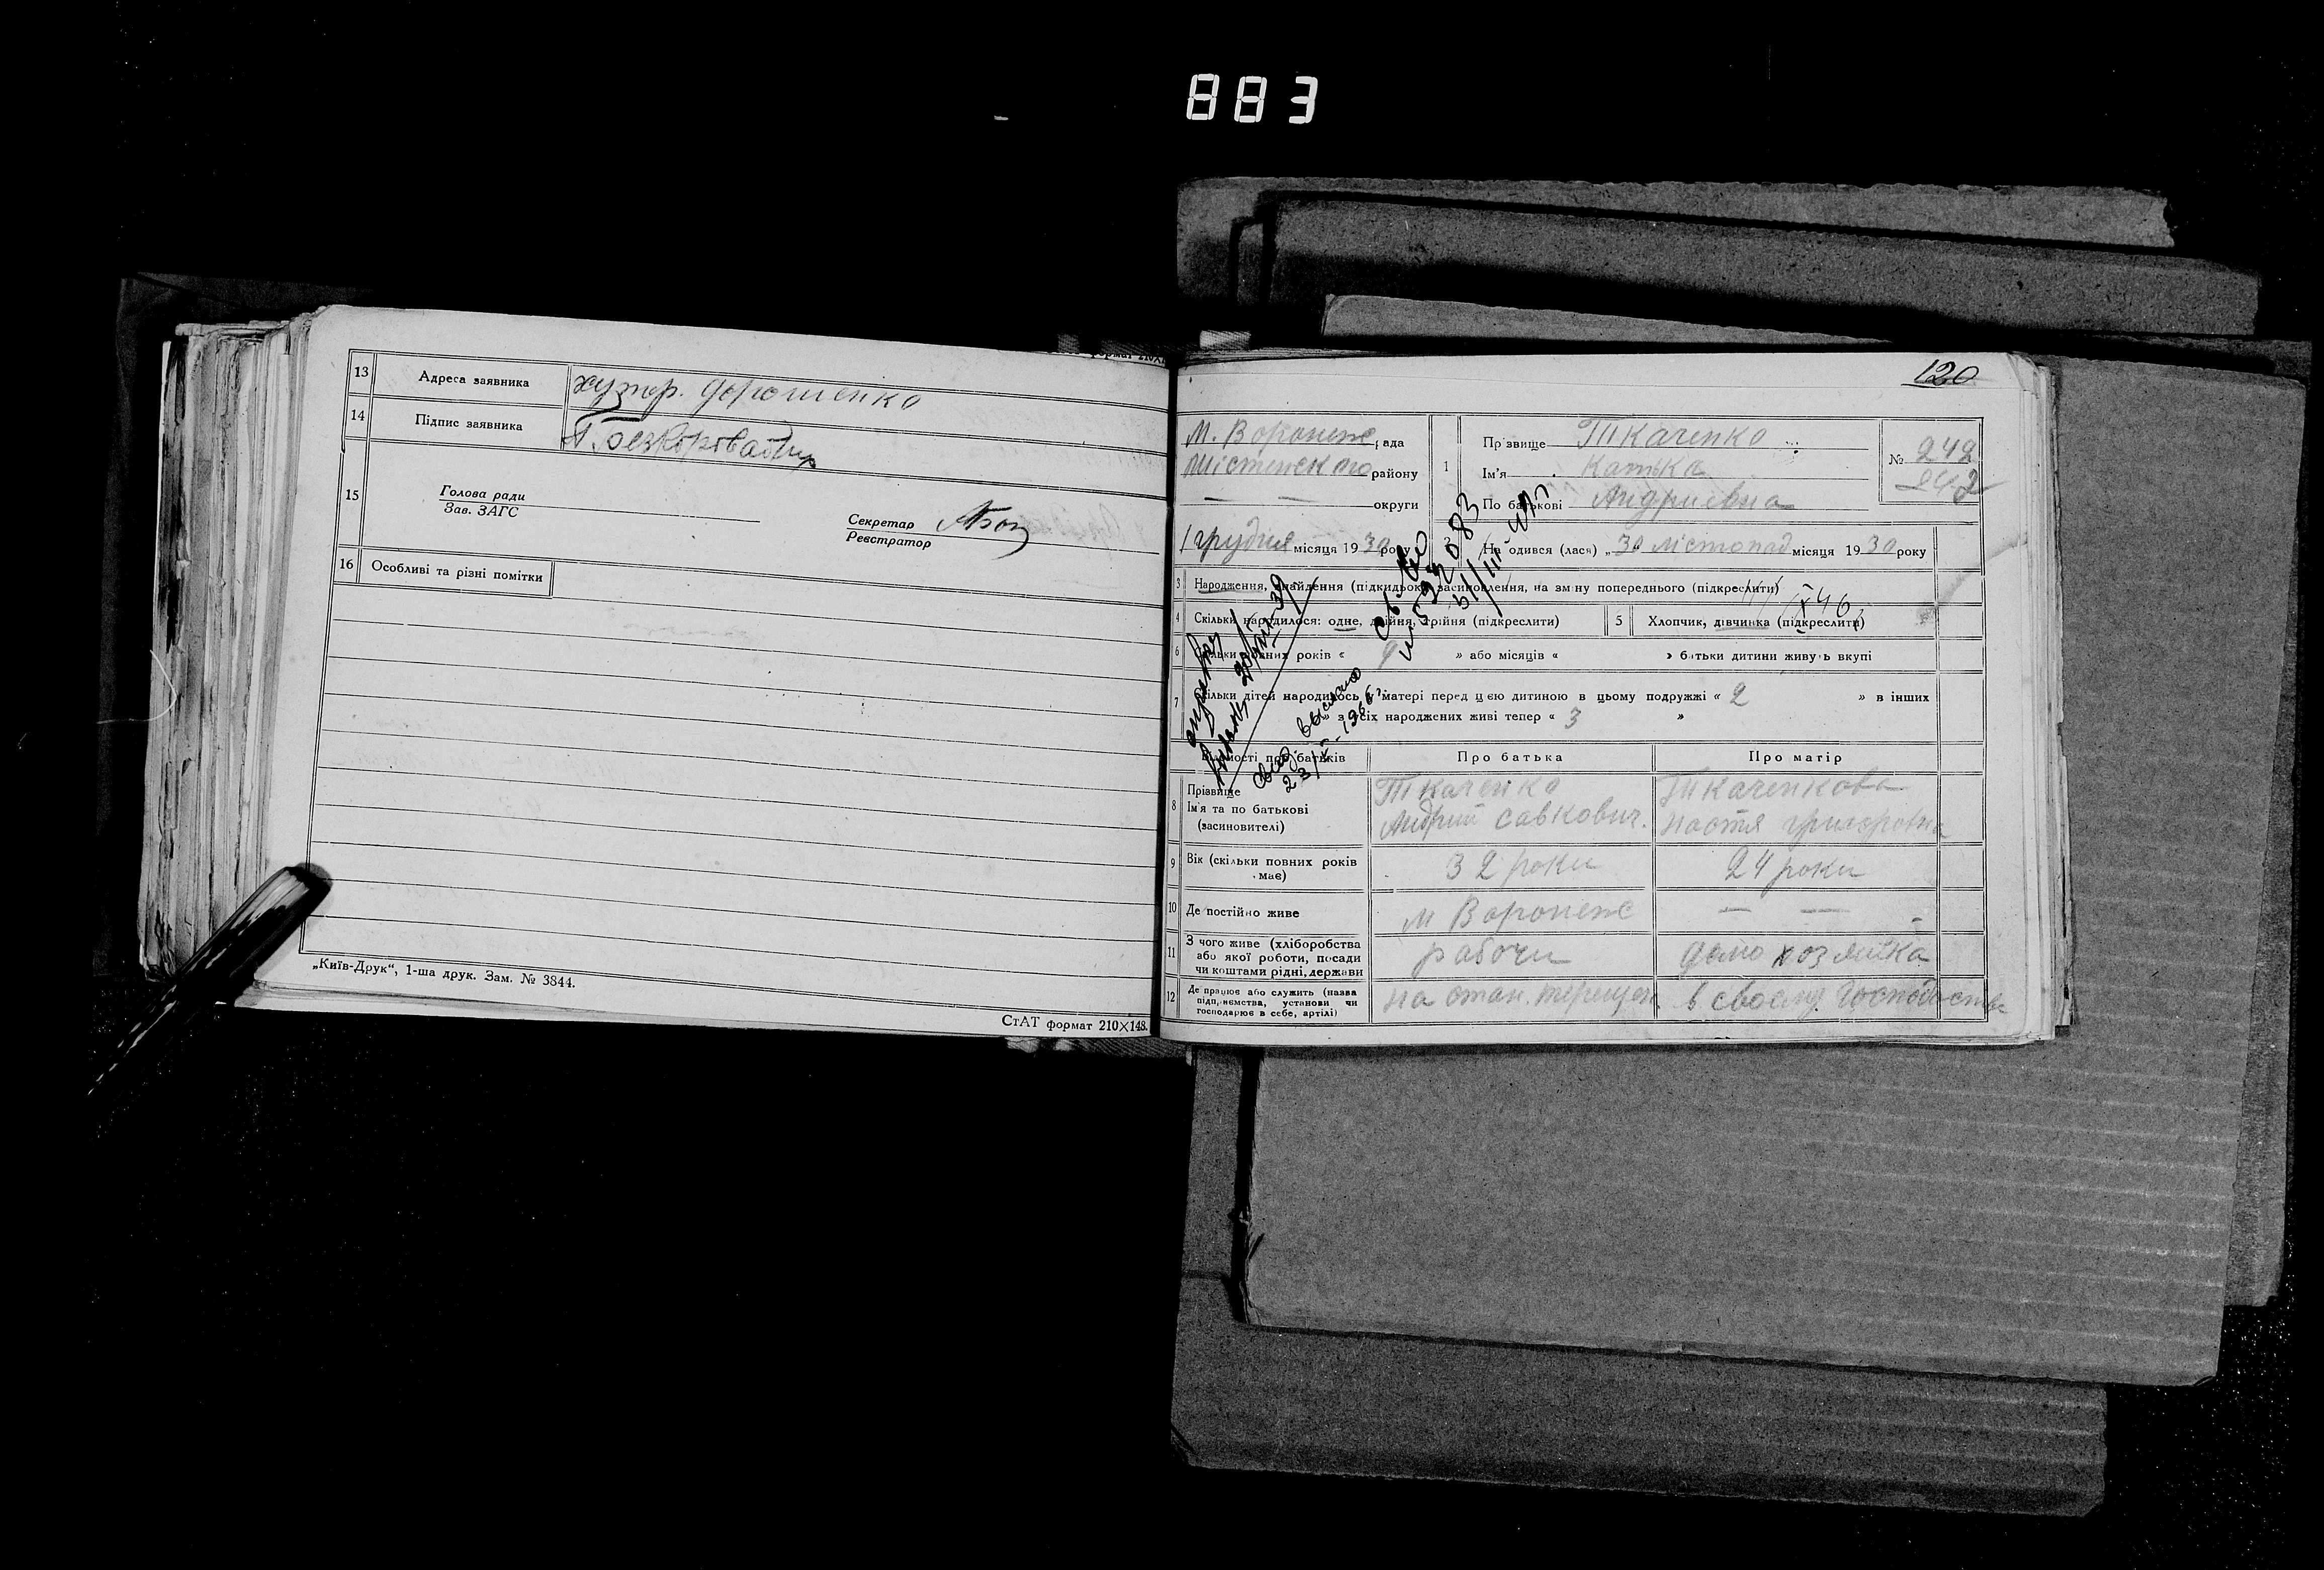 883
формат 210×1
13 Адреса заявника хутор. Дорошенко
14 Підпис заявника
15 Голова ради
Зав. ЗАГС
Секретар
Реєстратор
16 Особливі та різні помітки
„Київ-Друк“, 1-ша друк. Зам. № 3844.
СтАТ формат 210×148.
120
М. Воронеж рада
района
округи
1 Прізвище Ткаченко
Ім'я Катька
По батькові Андриевна
№ 242
242
1 грудня місяця 1930 року
2 Народився (лася) „30 лістопад місяця 1930 року
3 Народження, знайдення (підкидьок), засиновлення, на зміну попереднього (підкреслити)
4 Скільки народилося: одне, двійня, трійня (підкреслити)
5 Хлопчик, дівчинка (підкреслити)
6 Скільки повних років « 9 » або місяців « » батьки дитини живуть вкупі
7 Скільки дітей народилось у матері перед цією дитиною в цьому подружжі « 2 » в інших
» з усіх народжених живі тепер « 3 »
Відомості про батьків
Про батька
Про матір
8 Прізвище
Ім'я та по батькові
(засиновителі)
Ткаченко
Андрий Савкович.
Ткаченкова
Настя
9 Вік (скільки повних років має)
32 роки
24 роки
10 Де постійно живе
м Воронеж
— —
11 З чого живе (хліборобства
або якої роботи, посади
чи коштами рідні, держави
рабочи
домохозяйка
12 Де працює або служить (назва
підприємства, установи чи
господарює в себе, артілі)
на стан. терещен
в своему господарстве
Св-во
№ 592083
Свид. выслано
23/X-1966 г